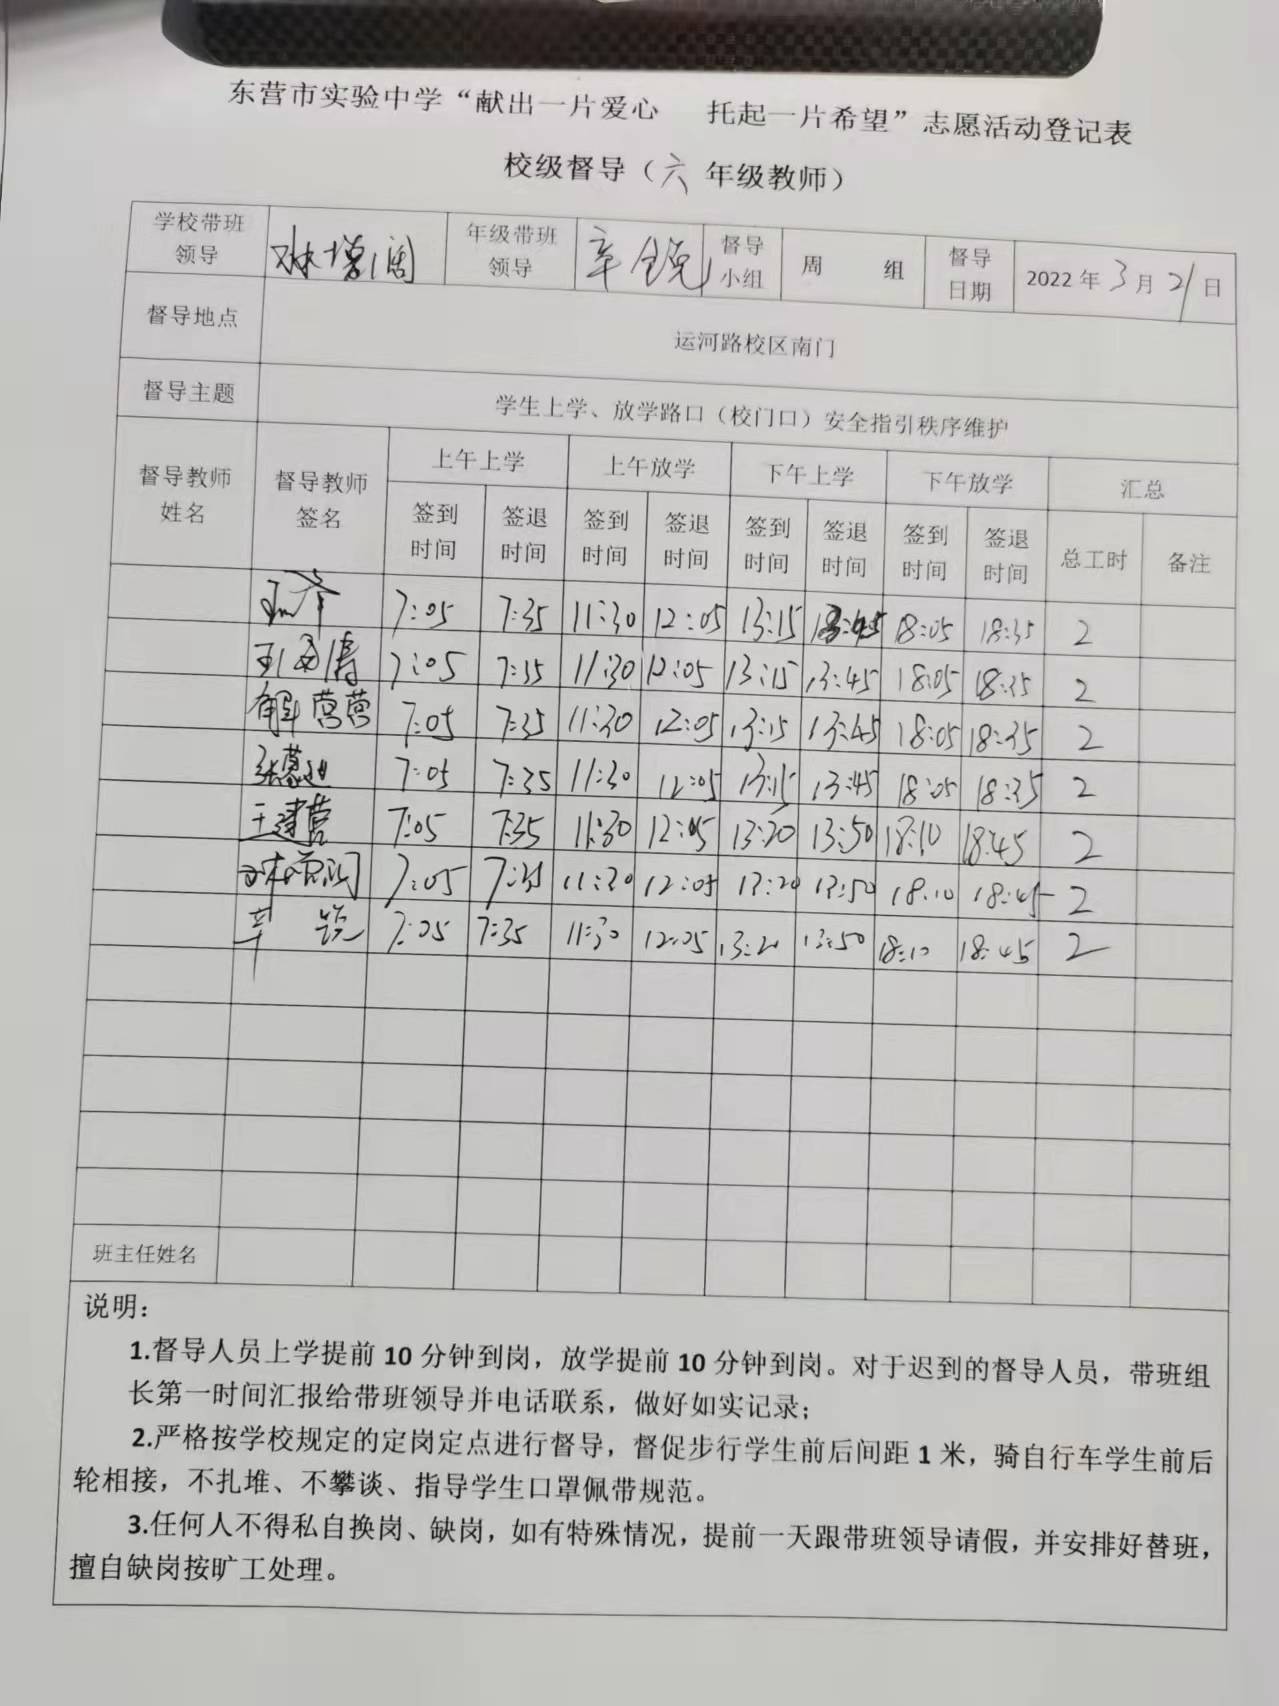 东营市实验中学“献出一片爱心 托起一片希望”志愿活动登记表
校级督导（六 年级教师）
学校带班领导 年级带班领导 辛锐 督导小组 周 组 督导日期 2022年3月21日
督导地点 运河路校区南门
督导主题 学生上学、放学路口（校门口）安全指引秩序维护
督导教师姓名 督导教师签名 上午上学 上午放学 下午上学 下午放学 汇总
签到时间 签退时间 签到时间 签退时间 签到时间 签退时间 签到时间 签退时间 总工时 备注
7:05 7:35 11:30 12:05 13:15 13:45 18:05 18:35 2
7:05 7:35 11:30 12:05 13:15 13:45 18:05 18:35 2
解营营 7:05 7:35 11:30 12:05 13:15 13:45 18:05 18:35 2
7:05 7:35 11:30 12:05 13:15 13:45 18:05 18:35 2
王建营 7:05 7:35 11:30 12:05 13:20 13:50 18:10 18:45 2
7:05 7:35 11:30 12:05 13:20 13:50 18:10 18:45 2
辛锐 7:05 7:35 11:30 12:05 13:20 13:50 18:10 18:45 2
班主任姓名
说明：
1.督导人员上学提前10分钟到岗，放学提前10分钟到岗。对于迟到的督导人员，带班组
长第一时间汇报给带班领导并电话联系，做好如实记录；
2.严格按学校规定的定岗定点进行督导，督促步行学生前后间距1米，骑自行车学生前后
轮相接，不扎堆、不攀谈、指导学生口罩佩带规范。
3.任何人不得私自换岗、缺岗，如有特殊情况，提前一天跟带班领导请假，并安排好替班，
擅自缺岗按旷工处理。